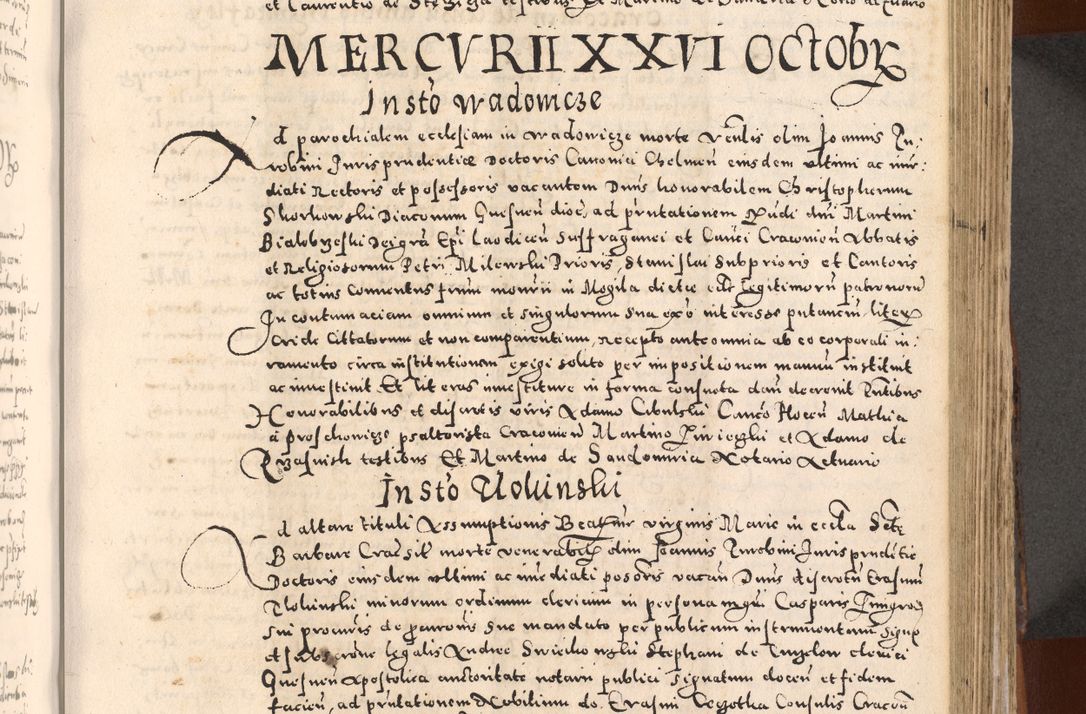 MERCVRII XXVI OCTobr
Insto wadowicze
Ad parochialem ecclesiam in wadowicze morte venlis olim Joannis Zu-
robini Jurisprudentiæ Doctoris Canonici Chelmen eiusdem ultimi ac imme-
diati Rectoris et possessoris vacantem Dnus honorabilem Christopherum
Skorkowski Diaconum Gnesnen dioc, ad pntationem Rndi dni Martini
Bialobrzeski Dei gra Epi Laodicen Suffraganei et Canci Cracouien Abbatis
et Religiosorum Petri Milewski Prioris, Stanislai Subprioris et Cantoris
ac totius Conuentus frum monrii in Mogila dictæ eccle legitimoru patronoru
In contumaciam omnium et singulorum sua exo interesse putanciu literis
Cridæ Cittatorum et non comparentium, recepto ante omnia ab eo corporali iu-
ramento circa institutionem exigi solito per impositionem manuu instituit
ac inuestiuit Et literas inuestiture in forma consueta dari decreuit Pntibus
Honorabilibus et discretis viris Adamo Cibulski Canco Plocen Mathia
a Proschowicze psalterista Cracouien Martino et Adamo de
Krzasnik testibus Et Martino de Sandomiria Notario Actuario
Insto Uolinski
Ad altare tituli Assumptionis Beatissimæ virginis Marie in eccla Sctæ
Barbare Crac sit morte venerabilis olim Joannis Zurobini Jurisprudetie
Doctoris eiusdem ultimi ac imediati posoris vacan Dnus discretu Erasmu
Uolinski minorum ordinum clericum in persona mgri Casparis
Sui procuris de pcuroris sue mandato per publicum instrumentum
et subscrone legalis Andree Swiechowski Stephani de clerici
Gnesnen Apostolica auctoritate notarii publici signatum docen et fidem
facien, ad pntationem Nobilium do. Erasmi Consulis Cracou